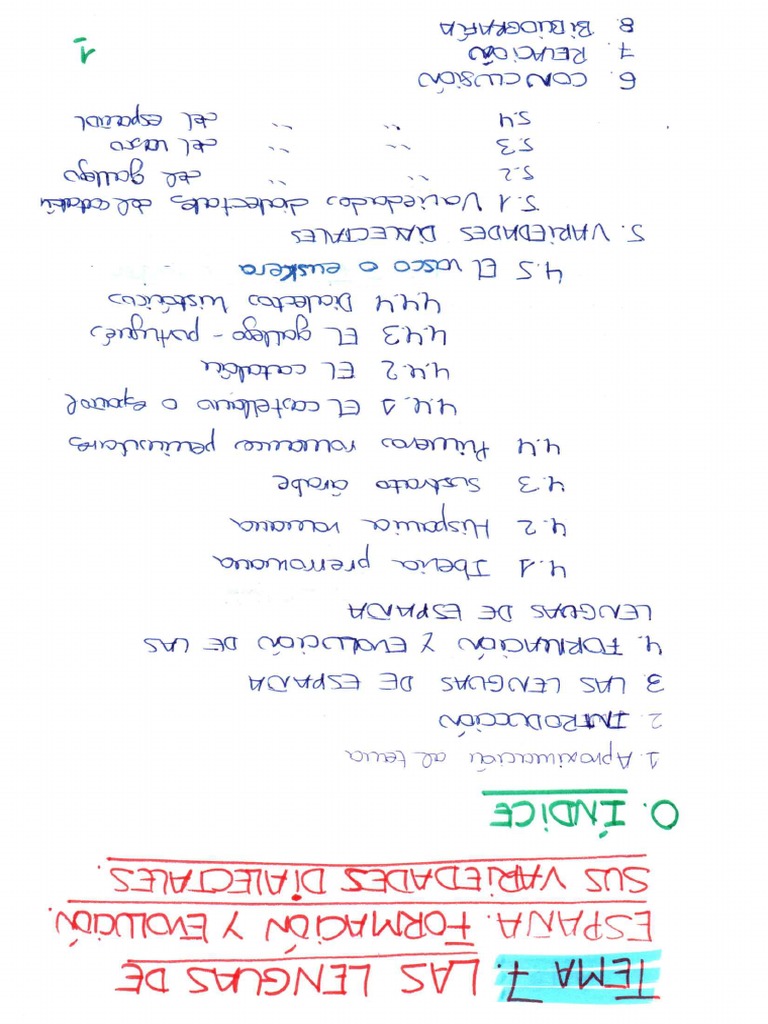 TEMA 7. LAS LENGUAS DE
ESPAÑA. FORMACIÓN Y EVOLUCIÓN.
SUS VARIEDADES DIALECTALES.
0. ÍNDICE
1. Aproximación al tema
2. INTRODUCCIÓN
3 LAS LENGUAS DE ESPAÑA
4. FORMACIÓN Y EVOLUCIÓN DE LAS
LENGUAS DE ESPAÑA
4.1 Iberia prerromana
4.2 Hispania romana
4.3 Sustrato árabe
4.4 Primeros romance peninsulares
4.4.1 El castellano o español
4.4.2 El catalán
4.4.3 El gallego-portugués
4.4.4 Dialectos históricos
4.5 El vasco o euskera
5. VARIEDADES DIALECTALES
5.1 Variedades dialectales del catalán
5.2 " " del gallego
5.3 " " del vasco
5.4 " " del español
6. CONCLUSIÓN
7. RELACIÓN
8. BIBLIOGRAFÍA
1